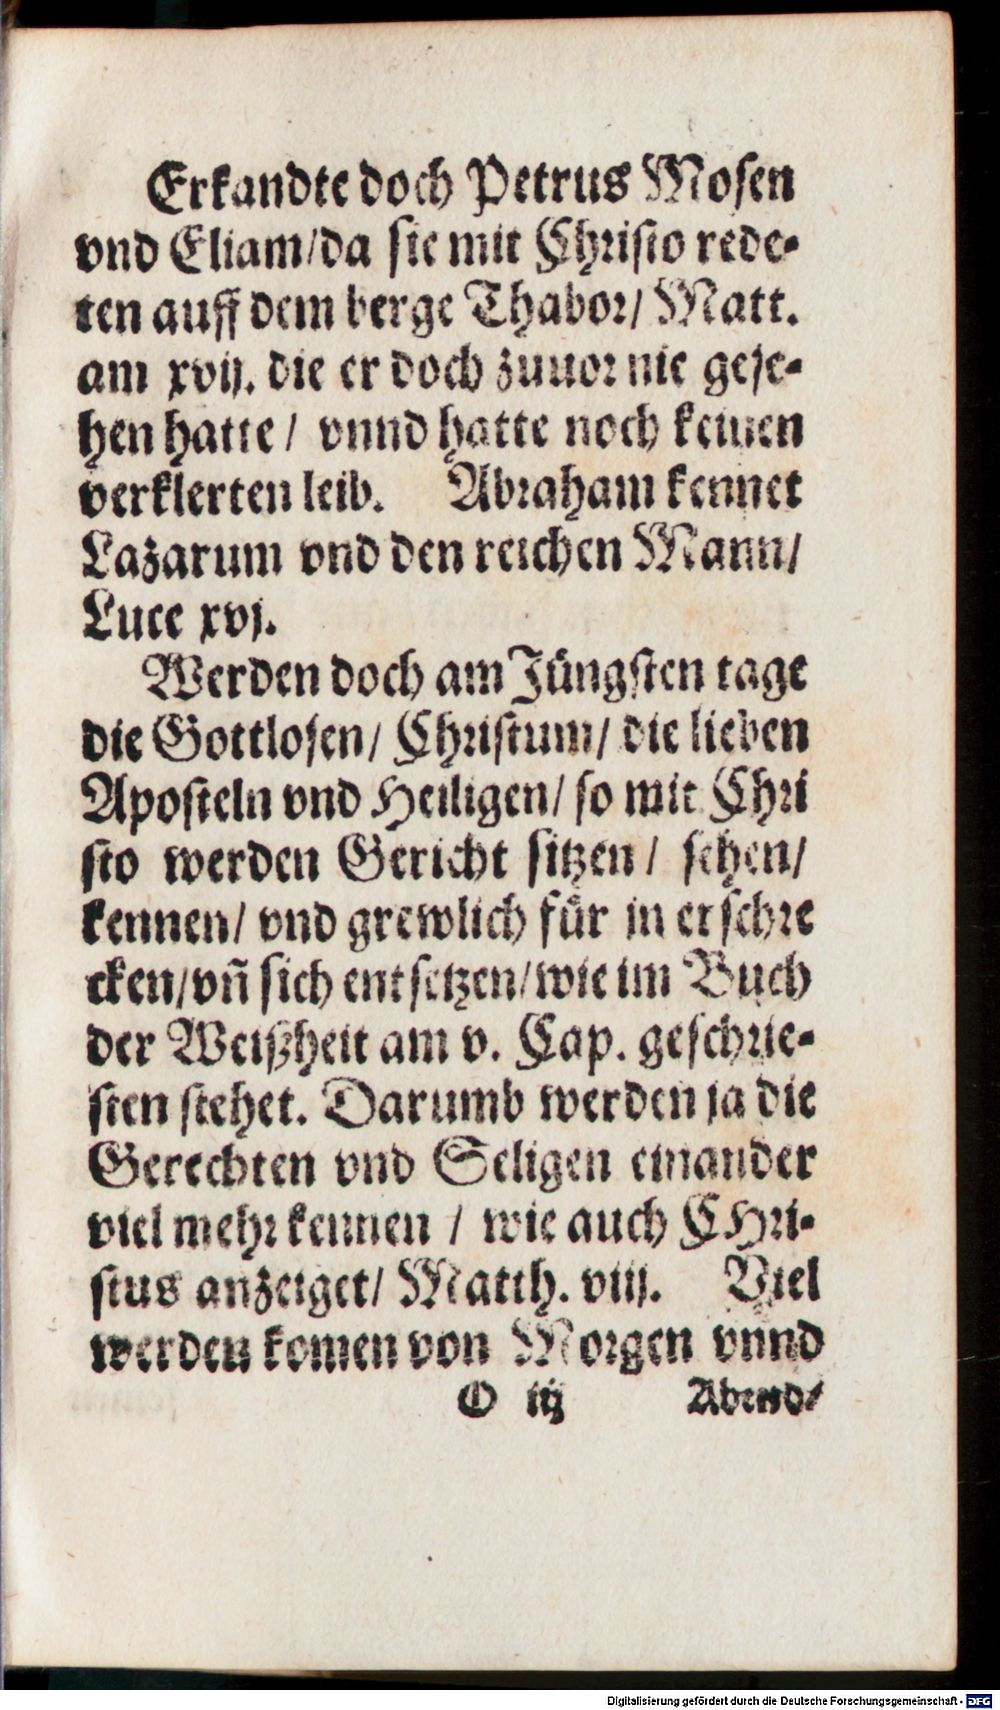 Erkandte doch Petrus Mosen
vnd Eliam/da sie mit Christo rede-
ten auff dem berge Thabor/ Matt.
am xvij. die er doch zuuor nie gese-
hen hatte / vnnd hatte noch keinen
verklerten leib. Abraham kennet
Lazarum vnd den reichen Mann/
Luce xvj.
Werden doch am Jüngsten tage
die Gottlosen/ Christum/ die lieben
Aposteln vnd Heiligen/ so mit Chri
sto werden Gericht sitzen / sehen/
kennen/ vnd grewlich für jn erschre
cken/vñ sich entsetzen/wie im Buch
der Weißheit am v. Cap. geschrie-
sten stehet. Darumb werden ja die
Gerechten vnd Seligen einander
viel mehr kennen / wie auch CHri-
stus anzeiget/ Matth. viij. Viel
werden komen von Morgen vnnd
O iij Abend/
Digitalisierung gefördert durch die Deutsche Forschungsgemeinschaft - DFG